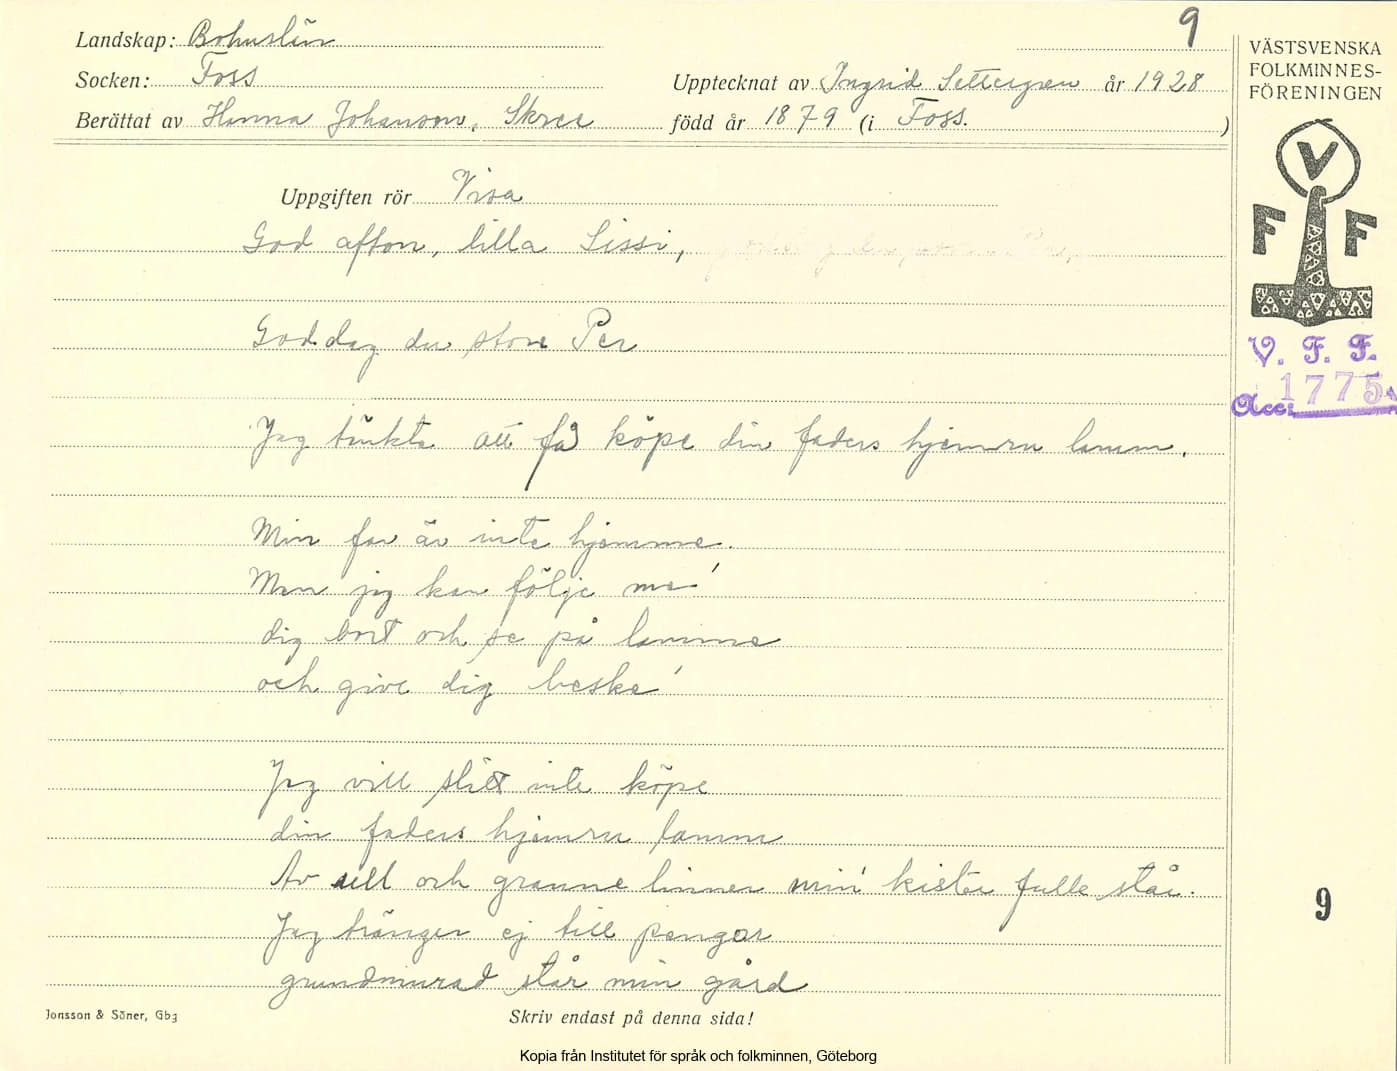 9
Landskap: Bohuslän
Socken: Foss
Upptecknat av Ingrid Settergren år 1928
Berättat av Hanna Johanson, Skree född år 1879 (i Foss.)
VÄSTSVENSKA
FOLKMINNES-
FÖRENINGEN
V
F F
V. F. F.
Acc: 1775
Uppgiften rör Visa
God afton, lilla Sissi,
God dag du store Per
Jag tänkte att få köpe din faders hjemru lamm.
Min far är inte hjemme.
Men jag kan följe me'
dig bort och se på lamme
och give dig beske'
Jag vill slätt inte köpe
din faders hjemru lamm
Av sill och granne linner min' kister fulle står.
Jag tränger ej till pengar
grundmurad står min gård
9
Jonsson & Söner, Gbg
Skriv endast på denna sida!
Kopia från Institutet för språk och folkminnen, Göteborg